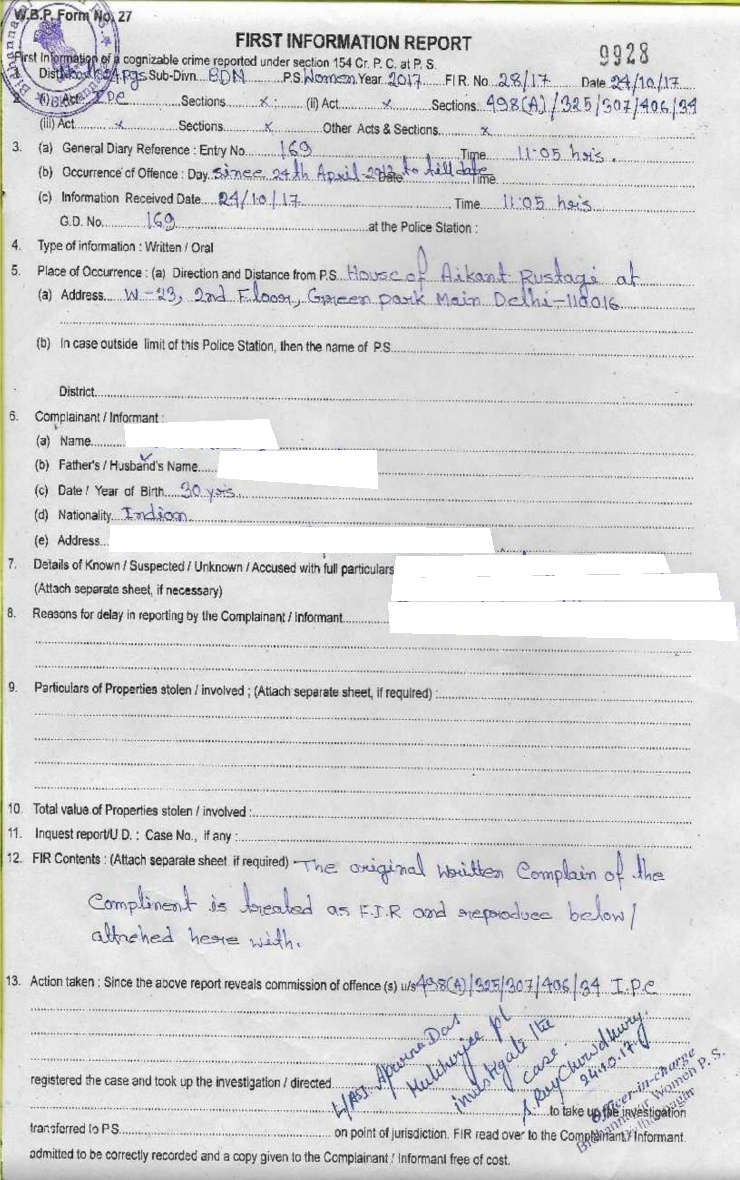 W.B.P. Form No. 27
FIRST INFORMATION REPORT
9928
First Information of a cognizable crime reported under section 154 Cr. P. C. at P. S.
Dist. North 24 Pgs Sub-Divn. BDN P.S. Women Year 2017 F.I.R. No 28/17 Date 24/10/17
(i) Act IPC Sections x (ii) Act x Sections 498(A)/325/307/406/34
(iii) Act x Sections x Other Acts & Sections x
3. (a) General Diary Reference : Entry No. 169 Time 11:05 hrs.
(b) Occurrence of Offence : Day since 24th April Date to till date Time
(c) Information Received Date 24/10/17 Time 11:05 hrs
G.D. No. 169 at the Police Station :
4. Type of information : Written / Oral
5. Place of Occurrence : (a) Direction and Distance from P.S. House of Aikant Rustagi at
(a) Address W-23, 2nd Floor, Green park Main Delhi-110016
(b) In case outside limit of this Police Station, then the name of P.S.
District
6. Complainant / Informant :
(a) Name
(b) Father's / Husband's Name
(c) Date / Year of Birth 30 yrs.
(d) Nationality Indian
(e) Address
7. Details of Known / Suspected / Unknown / Accused with full particulars
(Attach separate sheet, if necessary)
8. Reasons for delay in reporting by the Complainant / Informant
9. Particulars of Properties stolen / involved ; (Attach separate sheet, if required) :
10. Total value of Properties stolen / involved :
11. Inquest report/U D. : Case No., if any :
12. FIR Contents : (Attach separate sheet, if required) The original written Complain of the
Complinent is treated as F.I.R and reproduce below/
attached here with.
13. Action taken : Since the above report reveals commission of offence (s) u/s 498(A)/325/307/406/34 I.P.C
L/ASI. Aparna Das
Mukherjee pl
investigate the
case.
A. Roy Chowdhury.
24.10.17
Officer-in-charge
Bidhannagar Women P. S.
Bidhannagar
registered the case and took up the investigation / directed
to take up the investigation
transferred to P.S. on point of jurisdiction. FIR read over to the Complainant / Informant.
admitted to be correctly recorded and a copy given to the Complainant / Informant free of cost.